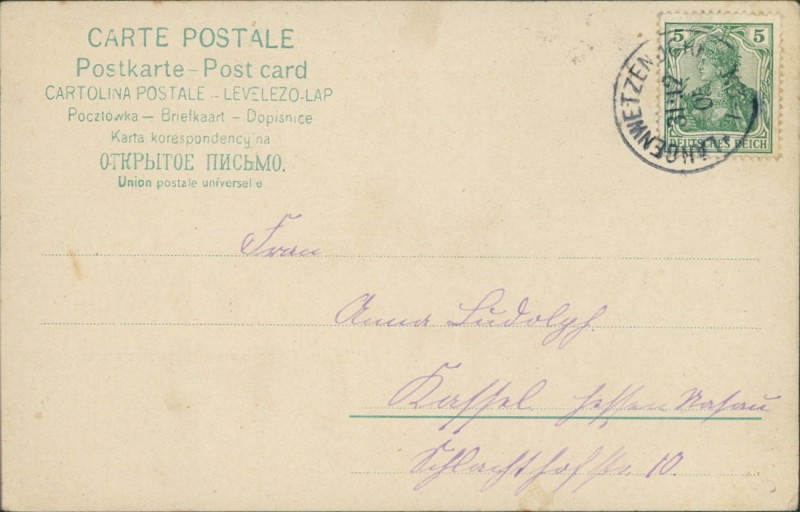 CARTE POSTALE
Postkarte – Post card
CARTOLINA POSTALE – LEVELEZO-LAP
Pocztówka — Briefkaart – Dopisnice
Karta korespondencyjna
ОТКРЫТОЕ ПИСЬМО.
Union postale universelle
5 5
DEUTSCHES REICH
LANGENWETZENDORF
31.12
05
Frau
Anna Ludolph.
Kassel Hessen Nasau
Schlachthofstr. 10.